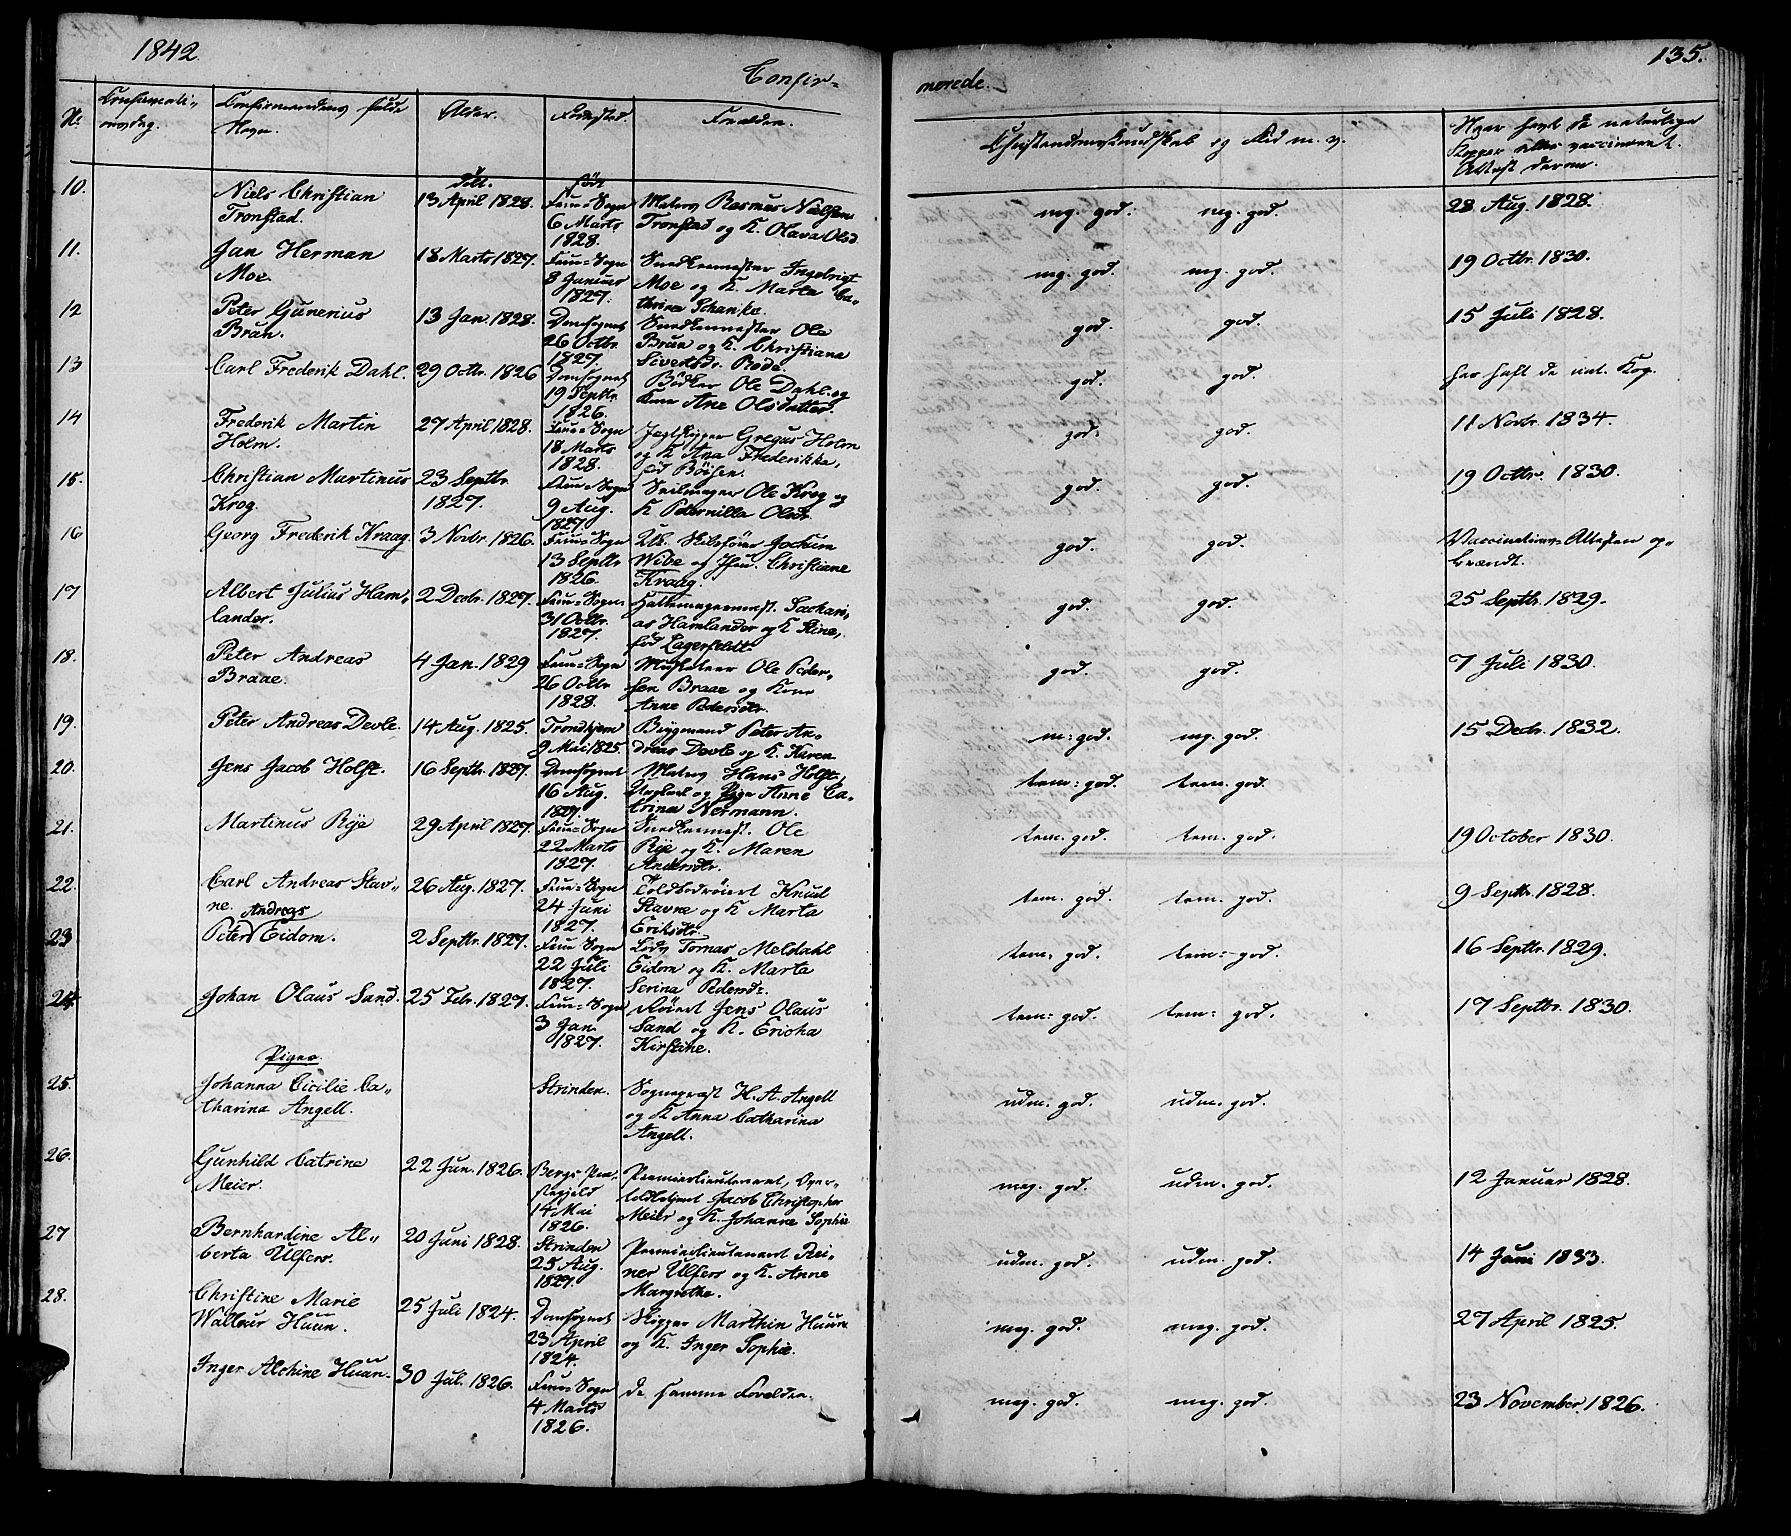 1842.
135.
Confir-
merede.
No
Confirmati-
onsdag.
Confirmandens fulde
Navn.
Alder.
Fødested.
Forældre.
Christendomskundskab og Flid m. v.
Naar havt de naturlige
Kopper eller vaccineret.
Attest derom.
døbt. født
10.
Niels Christian
Tronstad.
13 April 1828.
Frue-Sogn
6 Marts
1828.
Matros Rasmus Nielsen
Tronstad og K. Olava Olsd.
meg. god. meg. god.
28 Aug. 1828.
11.
Jan Herman
Moe.
18 Marts 1827.
Frue-Sogn
8 Januar
1827.
Snedkermester Ingebrigt
Moe og K. Marta Ca-
thrina Schanke.
meg. god. meg. god.
19 Octbr. 1830.
12
Peter Gunerius
Bruun.
13 Jan. 1828.
Domsognet
26 Octbr.
1827.
Snedkermester Ole
Bruun og K. Christiana
Sivertsdr. Rode.
god. god.
15 Juli 1828.
13
Carl Frederik Dahl.
29 Octbr. 1826
Domsognet
19 Septbr.
1826.
Bødker Ole Dahl og
Kone Ane Olsdatter.
god. god.
har haft de nat. Kop.
14
Frederik Martin
Holm.
27 April 1828.
Frue-Sogn
18 Marts
1828.
Jagtskipper Gregus Holm
og K Ana Frederikka,
fød Böisen.
god. god.
11 Novbr. 1834.
15.
Christian Martinus
Krog.
23 Septbr.
1827.
Frue-Sogn
9 Aug.
1827.
Seilmager Ole Krog og
K Peternilla Olsdr.
god. god.
19 Octbr. 1830.
16
Georg Frederik Kraag.
3 Novbr. 1826.
Frue-Sogn
13 Septbr.
1826.
Utl. Skibsfører Jochum
Wibe og Jfru. Christiane
Kraag.
god. god.
Vaccinations-Attesten op-
brændt.
17
Albert Julius Ham-
lander.
2 Decbr. 1827.
Frue-Sogn.
31 Octbr.
1827.
Hattemagermest. Sachari-
as Hamlander og K Stine,
fød Lagerfeldt.
god. god.
25 Septbr. 1829.
18.
Peter Andreas
Braae.
4 Jan. 1829
Frue-Sogn
26 Octbr
1828.
Musketeer Ole Peder-
sen Braae og Kone
Anne Pedersdr.
god. god.
7 Juli 1830.
19.
Peter Andreas Devle.
14 Aug. 1825.
Trondhjem
9 Mai 1825.
Bygmand Peter An-
dreas Devle og K. Karen
m: god. meg. god.
15 Decbr. 1832.
20.
Jens Jacob Holst.
16 Septbr. 1827.
Domsognet
16 Aug.
1827.
Matros Hans Holst,
Ungkarl og Pige Anne Ca-
trina Normann.
tem: god. tem. god.
21.
Martinus Rye
29 April 1827.
Frue-Sogn
22 Marts
1827.
Snedkermest. Ole
Rye og K. Maren
Andersdr.
tem. god. tem. god.
19 October 1830.
22.
Carl Andreas Stav-
ne.
26 Aug. 1827.
Frue-Sogn
24 Juni
1827.
Toldbodrøiert Knud
Stavne og K Marta
Eriksdr.
tem. god. tem. god.
9 Septbr. 1828.
23
Andreas
Peter Eidom.
2 Septbr. 1827.
Frue Sogn
22 Juli
1827.
Lods Tomas Meldahl
Eidom og K. Marta
Serina Pedersdr.
tem. god. tem: god.
16 Septbr. 1829.
24.
Johan Olaus Sand.
25 Febr. 1827.
Frue-Sogn
3 Jan.
1827.
Røiert Jens Olaus
Sand og K. Ericha
Kirstine.
tem: god. tem: god.
17 Septbr. 1830.
Piger.
25.
Johanna Cicilie Ca-
tharina Angell.
Strinden.
Sognepræst H. A. Angell
og K Anna Catharina
Angell.
udm. god. udm. god.
26.
Gunhild Catrine
Meier.
22 Jun. 1826.
Bergs Præ-
stegjeld
14 Mai
1826.
Premierlieutenant, Over-
toldbetjent Jacob Christopher
Meier og K. Johanne Sophie
meg. god. udm. god.
12 Januar 1828.
27
Bernhardine Al-
berta Ulfers.
20 Juni 1828.
Strinden
25 Aug.
1827.
Premierlieutenant Rei-
ner Ulfers og K. Anne
Margrethe.
udm. god. udm. god.
14 Juni 1833.
28.
Christine Marie
Walleur Huun.
25 Juli 1824.
Domsognet
23 April
1824.
Skipper Marthin Huun
og K. Inger Sophie.
meg. god. meg. god.
27 April 1825.
Inger Alchine Huun.
30 Jul. 1826.
Frue-Sogn
4 Marts
1826.
de samme Forældre.
meg. god. meg. god.
23 November 1826.